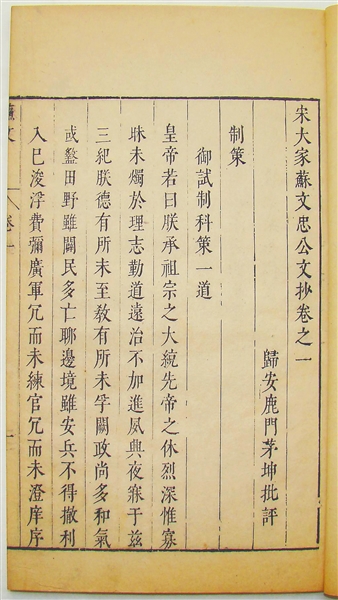 宋大家蘇文忠公文抄卷之一
歸安鹿門茅坤批評
制策
御試制科策一道
皇帝若曰朕承祖宗之大統先帝之休烈深惟寡
昧未燭於理志勤道遠治不加進夙興夜寐于兹
三紀朕德有所未至敎有所未孚闕政尚多和氣
或盭田野雖闢民多亡聊邊境雖安兵不得撤利
入已浚浮費彌廣軍冗而未練官冗而未澄庠序
蘇文
卷一
一